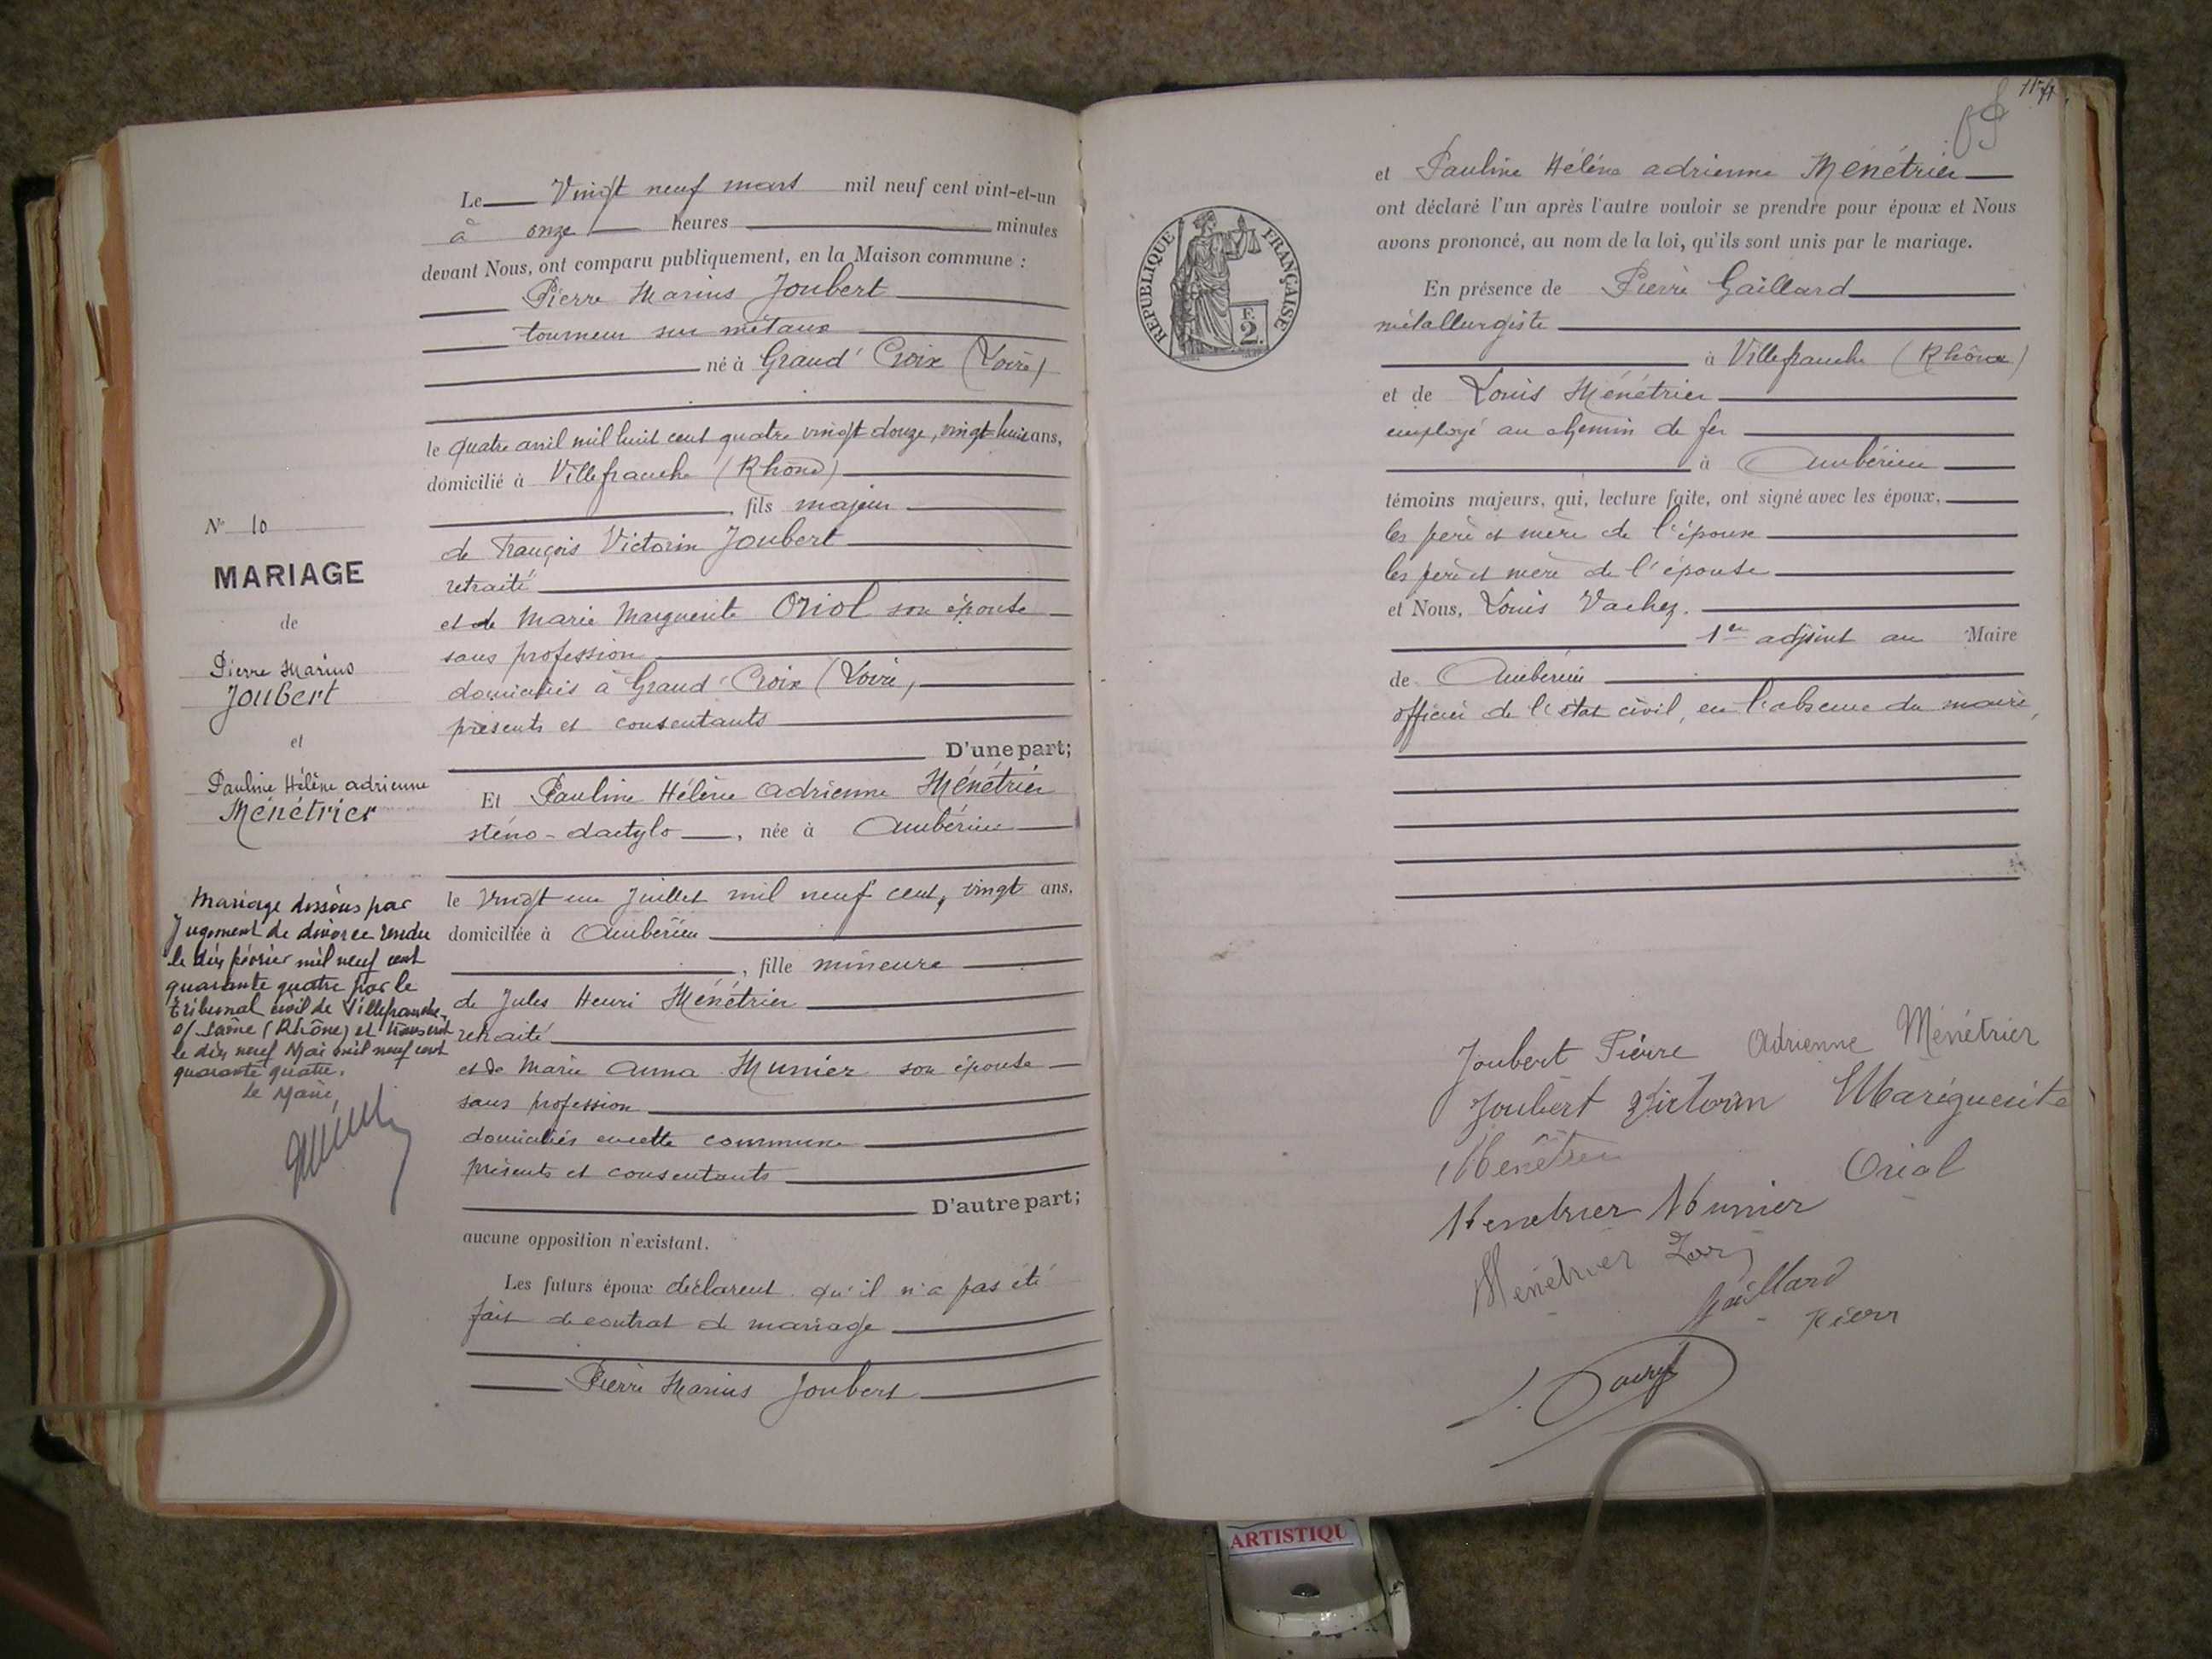 Le Vingt neuf mars mil neuf cent vint-et-un
à onze heures minutes
devant Nous, ont comparu publiquement, en la Maison commune :
Pierre Marius Joubert
tourneur sur métaux
né à Grand'Croix (Loire)
le quatre avril mil huit cent quatre vingt douze, vingt-huit ans,
domicilié à Villefranche (Rhône)
, fils majeur
de François Victorin Joubert
retraité
et de Marie Marguerite Oriol son épouse
sans profession
domiciliés à Grand'Croix (Loire)
présents et consentants
D'une part;
Et Pauline Hélène Adrienne Ménétrier
sténo-dactylo, née à Ambérieu
le vingt un Juillet mil neuf cent, vingt ans,
domiciliée à Ambérieu
, fille mineure
de Jules Henri Ménétrier
retraité
et de Marie Anna Munier son épouse
sans profession
domiciliés en cette commune
présents et consentants
D'autre part;
aucune opposition n'existant.
Les futurs époux déclarent qu'il n'a pas été
fait de contrat de mariage
Pierre Marius Joubert
N° 10
MARIAGE
de
Pierre Marius
Joubert
et
Pauline Hélène adrienne
Ménétrier
Mariage dissous par
Jugement de divorce rendu
le dix février mil neuf cent
quarante quatre par le
Tribunal civil de Villefranche-
s/ Saône (Rhône) et transcrit
le dix neuf Mai mil neuf cent
quarante quatre.
Le Maire,
RÉPUBLIQUE FRANÇAISE
F.
2.
et Pauline Hélène adrienne Ménétrier
ont déclaré l'un après l'autre vouloir se prendre pour époux et Nous
avons prononcé, au nom de la loi, qu'ils sont unis par le mariage.
En présence de Pierre Gaillard
métallurgiste
à Villefranche (Rhône)
et de Louis Ménétrier
employé au chemin de fer
à Ambérieu
témoins majeurs, qui, lecture faite, ont signé avec les époux,
les père et mère de l'époux
les père et mère de l'épouse
et Nous, Louis Vachez.
1er adjoint au Maire
de Ambérieu
officier de l'état civil, en l'absence du maire,
Joubert Pierre Adrienne Ménétrier
Joubert Victorin Mareguerite
Oriol
Menetrier Munier
Ménétrier
Gaillard
Pierr
ARTISTIQU